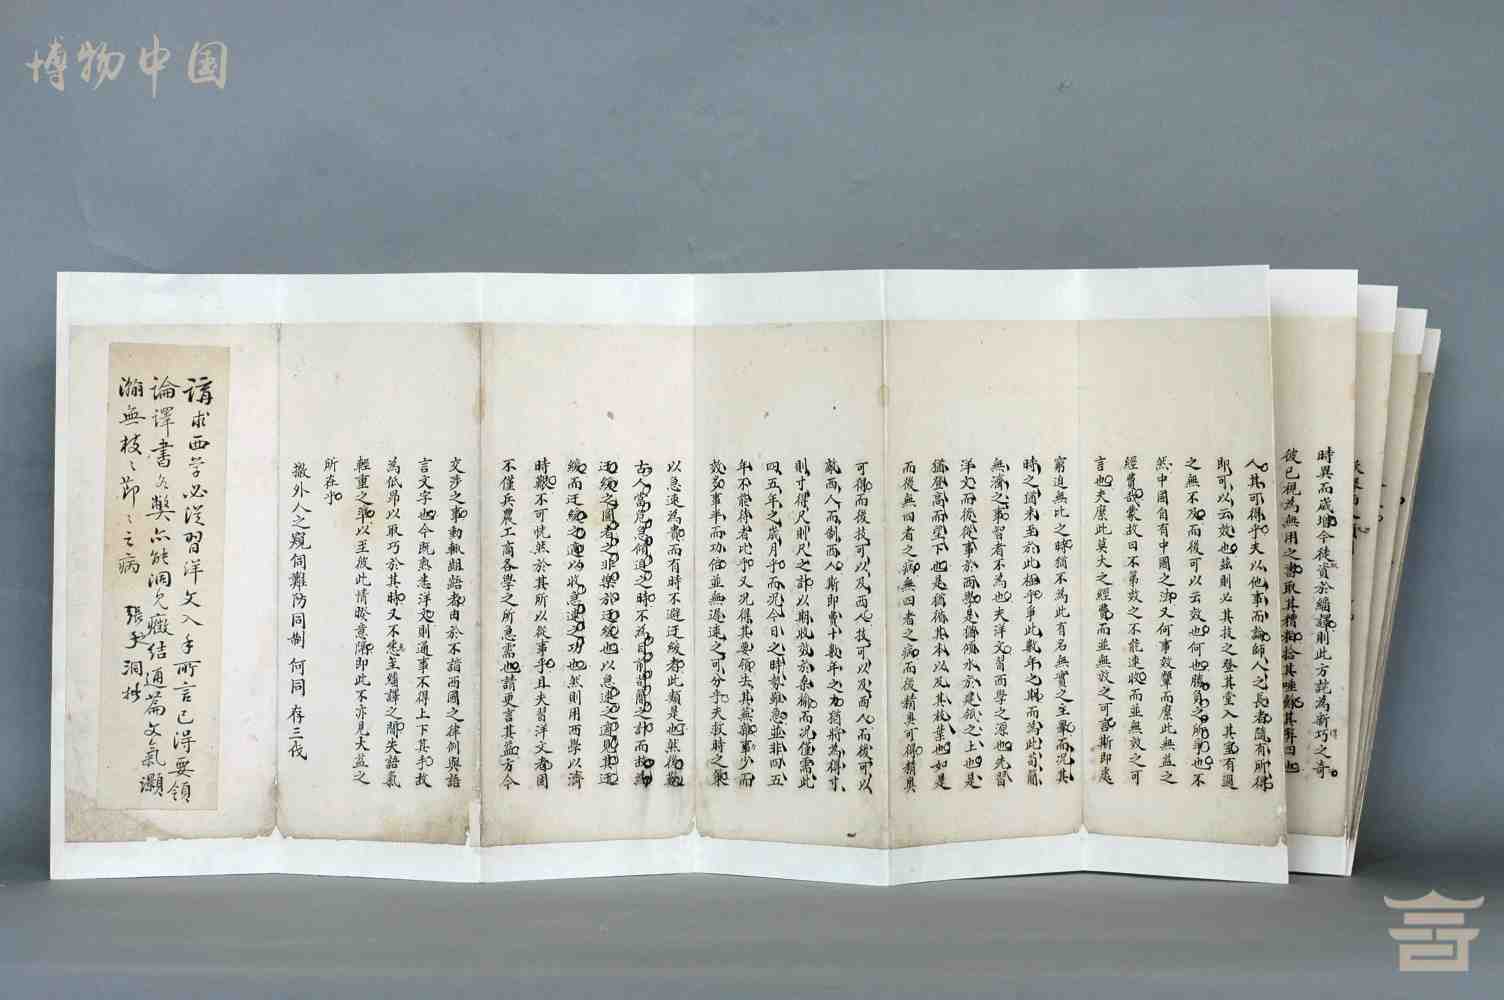 博物中国
時異而歲增今徒資於繙譯則此方詫為新巧之奇
彼已視為無用之書取其糟粕拾其唾餘其弊四也
人其可得乎夫以他事而論師人之長者隨有所得
即可以云效也茲則必其技之登其堂入其室有過
之無不及而後可以云效也何也勝負之所爭也不
然中國自有中國之法又何事效顰而糜此無益之
經費哉蒙故曰不第效之不能速收而並無效之可
言也夫糜此莫大之經費而並無效之可言斯即處
窮迫無比之時猶不為此有名無實之主舉而況其
時之猶未至於此極乎爭此數年之期而為此苟簡
無濟之事智者不為也夫洋文習西學之源也先習
洋文而後從事於西學是猶傾水於建瓴之上也是
猶登高而望下也是猶循其本以及其枝葉也如是
而後無四者之病無四者之病而後精奧可得精奧
可得而後技可以及西人技可以及西人而後可以
敵西人而制西人斯即費十數年之力猶將為得寸
則寸得尺則尺之計以期收效於桑榆而況僅需此
四五年之歲月乎而況今日之時勢雖急並非四五
年不能待者比乎又況得其要領去其蕪雜事少而
效多事半而功倍並無遲速之可分乎夫救時之藥
以急速為貴而有時不避迂緩者此類是也然後歎
古人當危急傾迫之時不為目前苟簡之計而故為
迂緩之圖者之非樂於迂緩也以急速之適見其迂
緩而迂緩之適以收急速之功也然則用西學以濟
時艱不可恍然於其所以從事乎且夫習洋文者固
不僅兵農工商各學之所急需也請更言其益方今
交涉之事動輒齟齬者由於不諳西國之律例與語
言文字也今既熟悉洋文則通事不得上下其手故
為低昂以取巧於其時又不患至繙譯之間失語氣
輕重之準以至彼此情睽意隔即此不亦見大益之
所在乎
撤外人之窺伺難防同制 何同 存三伐
講求西學必從習洋文入手所言已得要領
論譯書各弊亦能洞見癥結通篇文氣灝
瀚無枝枝節節之病
張 洞